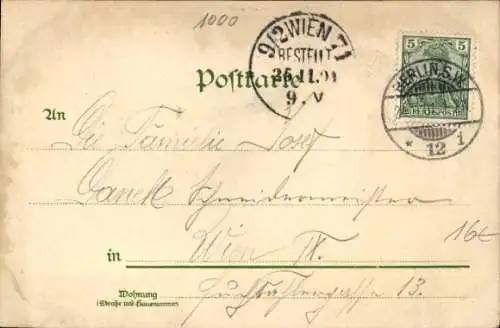 1000
9/2 WIEN 71
BESTELLT
25.11.01
9. V
5 5
BERLIN, S.W.
* 12 1
Postkarte
An
Die Familie Josef
Schneidermeister
in Wien IX.
16€
Wohnung
(Straße und Hausnummer)
13.